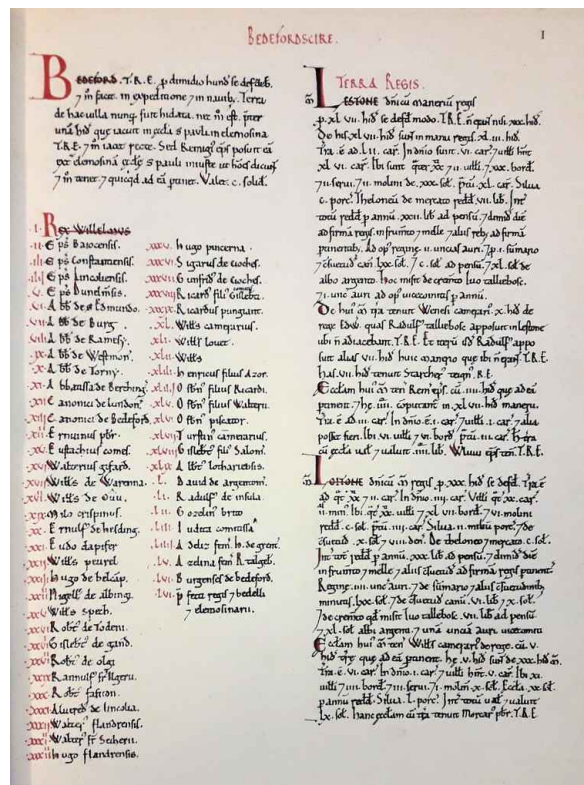 BEDEFORDSCIRE.
I
BEDEFORD. T.R.E. p dimidio hund se defdeb.
7 m facit. in expeditione 7 in nauib;. Terra
de hac uilla nunq fuit hidata. nec m est. pter
una hid que iacuit in eccla S pauli in elemosina
T.R.E. 7 m iacet recte. Sed Remigi eps posuit ea
ext elemosina eccle S pauli iniuste ut hoes dicunt
7 m tenet. 7 quicqd ad ea ptinet. Valet. c. solid.
.I. Rex Willelmus
.II. Eps Baiocensis.
.III. Eps Constantiensis.
.IIII. Eps Lincoliensis.
.V. Eps Dunelmsis.
.VI. Abb de S Edmundo.
.VII. Abb de Burg.
.VIII. Abb de Ramesy.
.IX. Abb de Westmon.
.X. Abb de Torny.
.XI. Abbatissa de Berching.
.XII. Canonici de Lundon.
.XIII. Canonici de Bedeford.
Ernuinus pbr.
Eustachius comes.
.XVI. Walterius gifard.
.XVII. Wills de Warenna.
.XVIII. Wills de Ou.
.XIX. Milo crispinus.
.XX. Ernulf de hesding.
.XXI. Eudo dapifer
.XXII. Wills peurel
.XXIII. Hugo de belcap.
.XXIIII. Nigell de albing
.XXV. Wills spech.
.XXVI. Robt de Todeni.
.XXVII. Gislebt de gand.
.XXVIII. Robt de olgi
.XXIX. Rannulf fr Ilgeri.
.XXX. Robt fafiton.
.XXXI. Aluered de lincolia.
.XXXII. Walter flandrensis.
.XXXIII. Walter fr Seiherii.
.XXXIIII. Hugo flandrensis.
.XXXV. Hugo pincerna.
.XXXVI. Sigarus de cioches.
.XXXVII. Gunfrid de cioches.
.XXXVIII. Ricard fili Gislebti.
.XXXIX. Ricardus pungiant.
.XL. Wills camerarius.
.XLI. Wills louet.
.XLII. Wills
.XLIII. Henricus filius Azor.
.XLIIII. Osbn filius Ricardi.
.XLV. Osbn filius Walterii.
.XLVI. Osbn piscator.
.XLVII. Turstin camerarius.
.XLVIII. Gislebt fili Salom.
.XLIX. Albt lothariensis.
.L. Dauid de argentom.
.LI. Radulf de insula.
.LII. Gozelin brito
.LIII. Iudita comitissa
.LIIII. Adeliz fem. H. de grent.
.LV. Azelina fem R. talgeb.
.LVI. Burgenses de bedeford.
.LVII. pfecti regis 7 bedelli
7 elemosinarii.
TERRA REGIS.
LESTONE dnicu maneriu regis
p. XL VII. hid se defd modo. T.R.E. n erant nisi xxx. hid.
De his XL VII. hid sunt in manu regis. XL III. hid
Tra. e ad. L II. car. In dnio sunt. VI. car. 7 uilli hnt
XL VI. car. Ibi sunt qt xx 7 II. uilli. 7 xxx. bord.
7 II. serui. 7 II. molini de. xxx. sol. ptu. XL. car. Silua
c. porc. Theloneu de mercato redd. VII. lib. Int
totu redd p annu. XXII. lib ad pensu. 7 dimid die
ad firma regis. in frumto 7 melle 7 aliis reb; ad firma
ptinentib;. Ad op regine. II. uncias auri. 7 p. I. sumario
7 c'suetud canu. LXX. sol. 7 c. sol ad pensu. 7 XL. sol de
albo argento. hoc misit de cremto Iuo tallebosc.
7 I. unc auri ad op uicecomitis p annu.
De hui M tra tenuit Wenesi camerari. X. hid de
rege Edw. quas Radulf tallebosc apposuit in Lestone
ubi n adiacebant. T.R.E. Et iteru isd Radulf appo
suit alias VII. hid huic manerio que ibi n erant. T.R.E.
has. VII. hid tenuit Starcher teign. R.E.
Eccliam hui M ten Remi eps. cu. IIII. hid que ad ea
ptinent. 7 he. IIII. coputant in. XL VII. hid manerii.
Tra. e ad. III. car. In dnio. e. I. car. 7 uilli. I. car. 7 alia
posset fieri. Ibi. VI. uilli 7 VI. bord. ptu. III. car. H tra
cu eccla uat 7 ualuit. IIII. lib. Wluui eps ten. T.R.E.
LOITONE dnicu M regis. p. xxx. hid se defd. Tra. e
ad qt xx 7 II. car. In dnio. IIII. car. Villi qt xx. car.
II. min. Ibi qt xx. uilli. 7 XL VII. bord. 7 VI. molini
redd. c. sol. ptu. IIII. car. Silua. II. milib; porc. 7 de
c'suetud. X. sol 7 VIII. den. De theloneo 7 mercato. c. sol.
Int tot redd p annu. xxx. lib. ad pensu. 7 dimid die
in frumto 7 melle 7 aliis c'suetud ad firma regis ptinent
Regine. IIII. unc auri. 7 de sumario 7 aliis c'suetudinib;
minutis. LXX. sol. 7 de c'suetud canu. VI. lib 7 X. sol.
7 de cremto qd misit Iuo tallebosc. VII. lib ad pensu
7 XL. sol albi argenti. 7 una uncia auri uicecomiti
Eccliam hui M ten Wills camerari de rege. cu. V.
hid tre que ad ea ptinent. he. V. hid sunt de xxx. hid M.
Tra. e. VI. car. In dnio. I. car. 7 uilli hnt. V. car. Ibi XI.
uilli 7 IIII. bord. 7 III. serui. 7 I. molin. X. sol. Eccla. XX. sol
p annu redd. Silua. L. porc. Int totu ual 7 ualuit
LX. sol. hanc eccliam cu tra tenuit Morcar pbr. T.R.E.